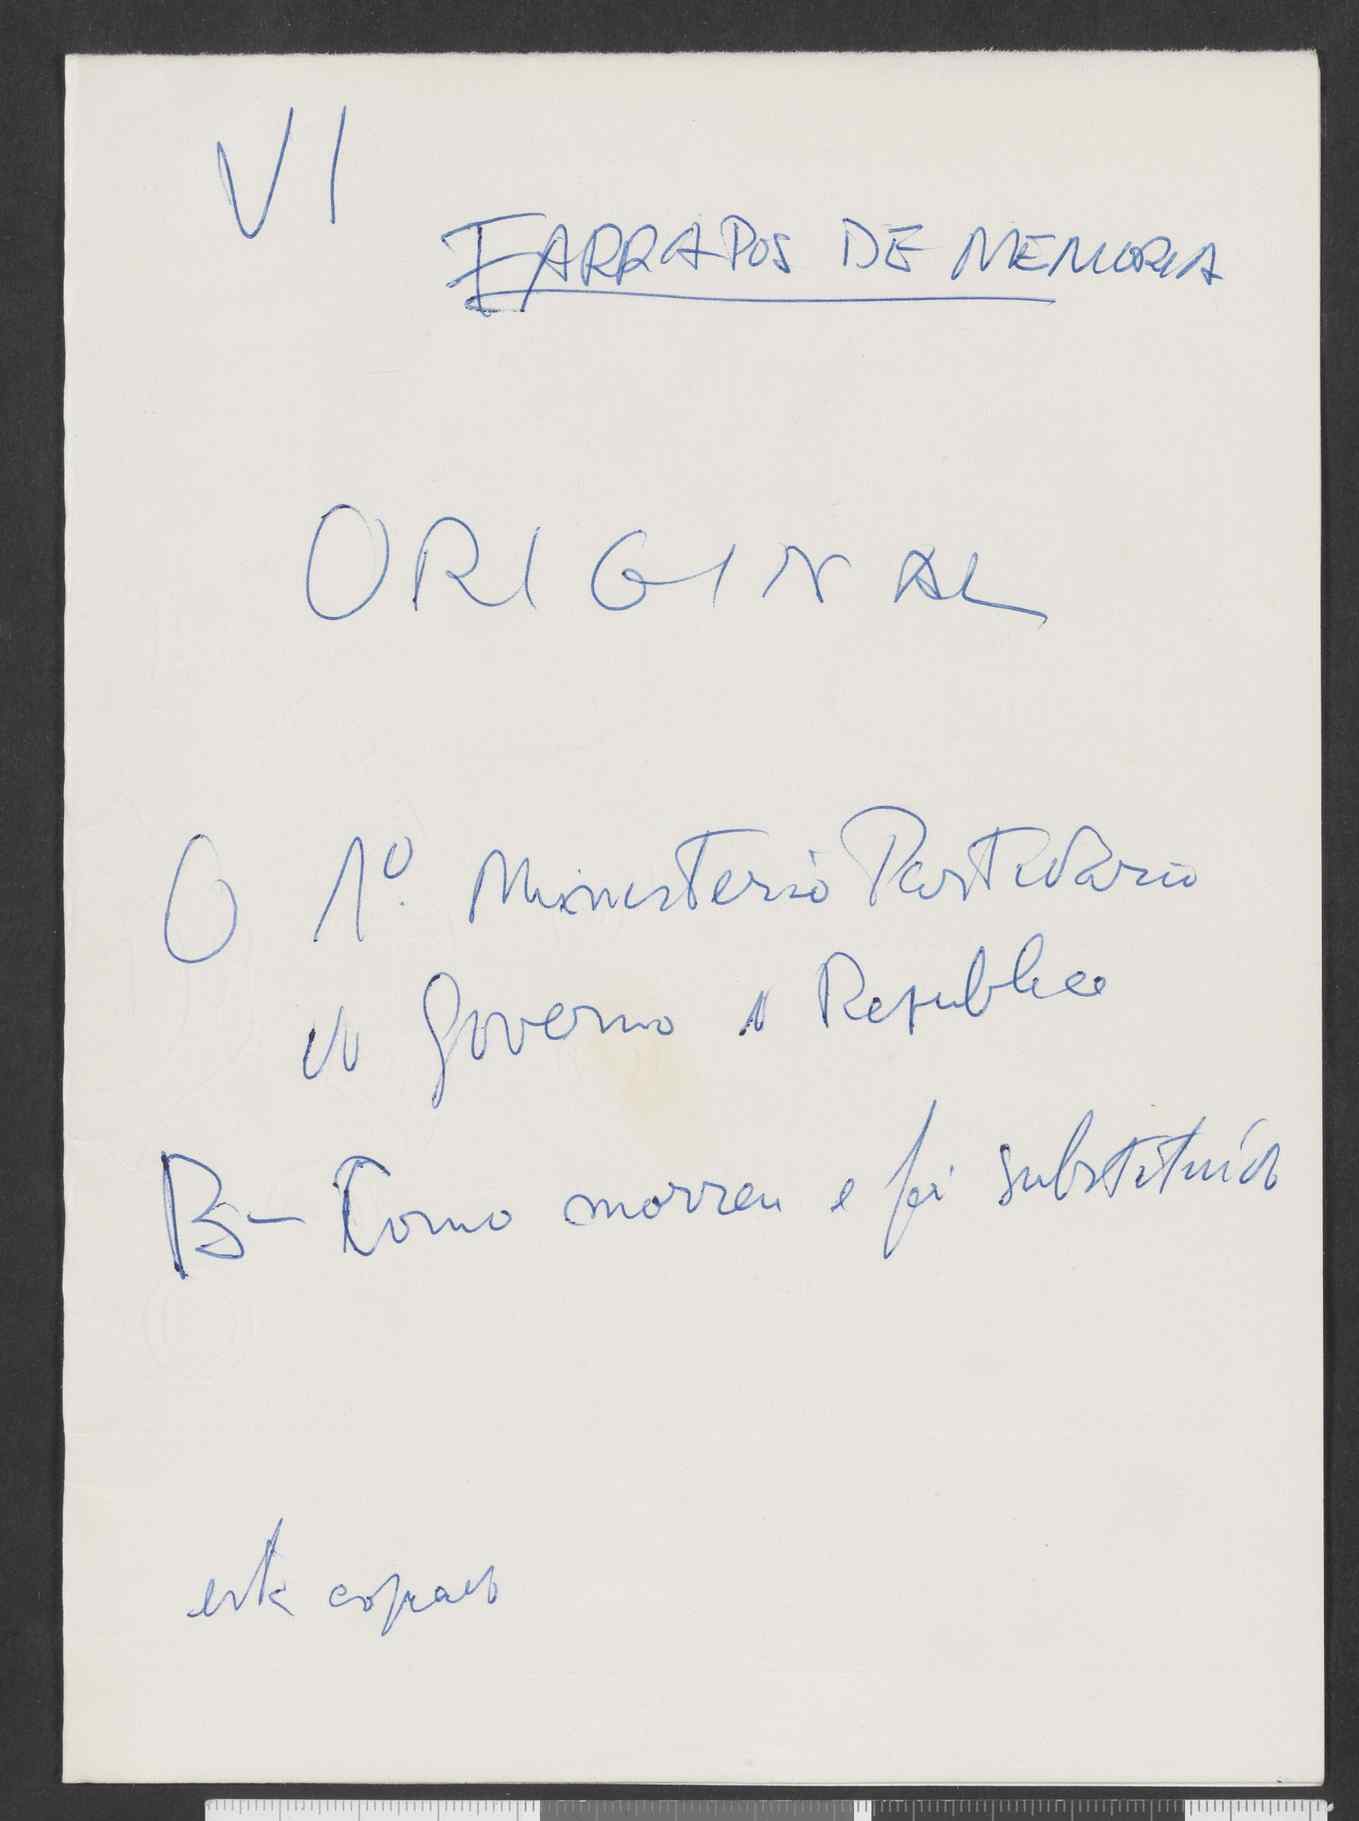 VI
FARRAPOS DE MEMORIA
ORIGINAL
O 1º Ministerio Partidario
do Governo da Republica
B- Como morreu e foi substituído
está copiado